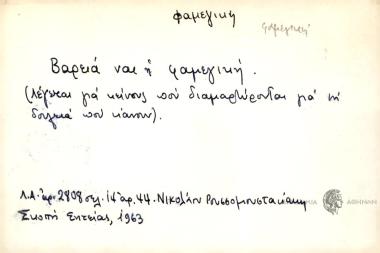 φαμεγική
φαμεγική
Βαρειά ναι ἡ φαμεγική.
(λέγεται γιά κείνους πού διαμαρτύρονται γιά τή
δουλειά πού κάνουν).
Λ.Α. ἀρ. 2808 σελ. 14 ἀρ. 44. Νικολάου Ρουσσομουστακάκη
Σκοπή Σητείας, 1963
ΑΘΗΝΩΝ